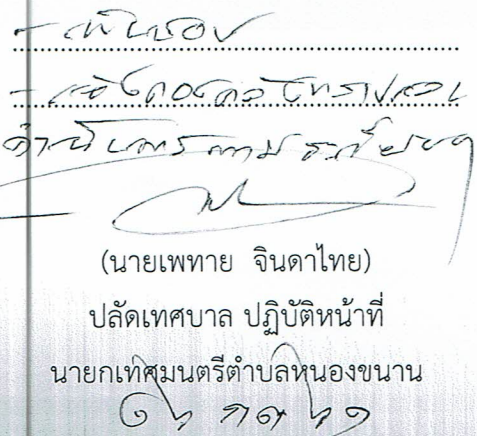 - เห็นชอบ
- แจ้งกองคลังทราบและ
ดำเนินการตามระเบียบฯ
(นายเพทาย จินดาไทย)
ปลัดเทศบาล ปฏิบัติหน้าที่
นายกเทศมนตรีตำบลหนองขนาน